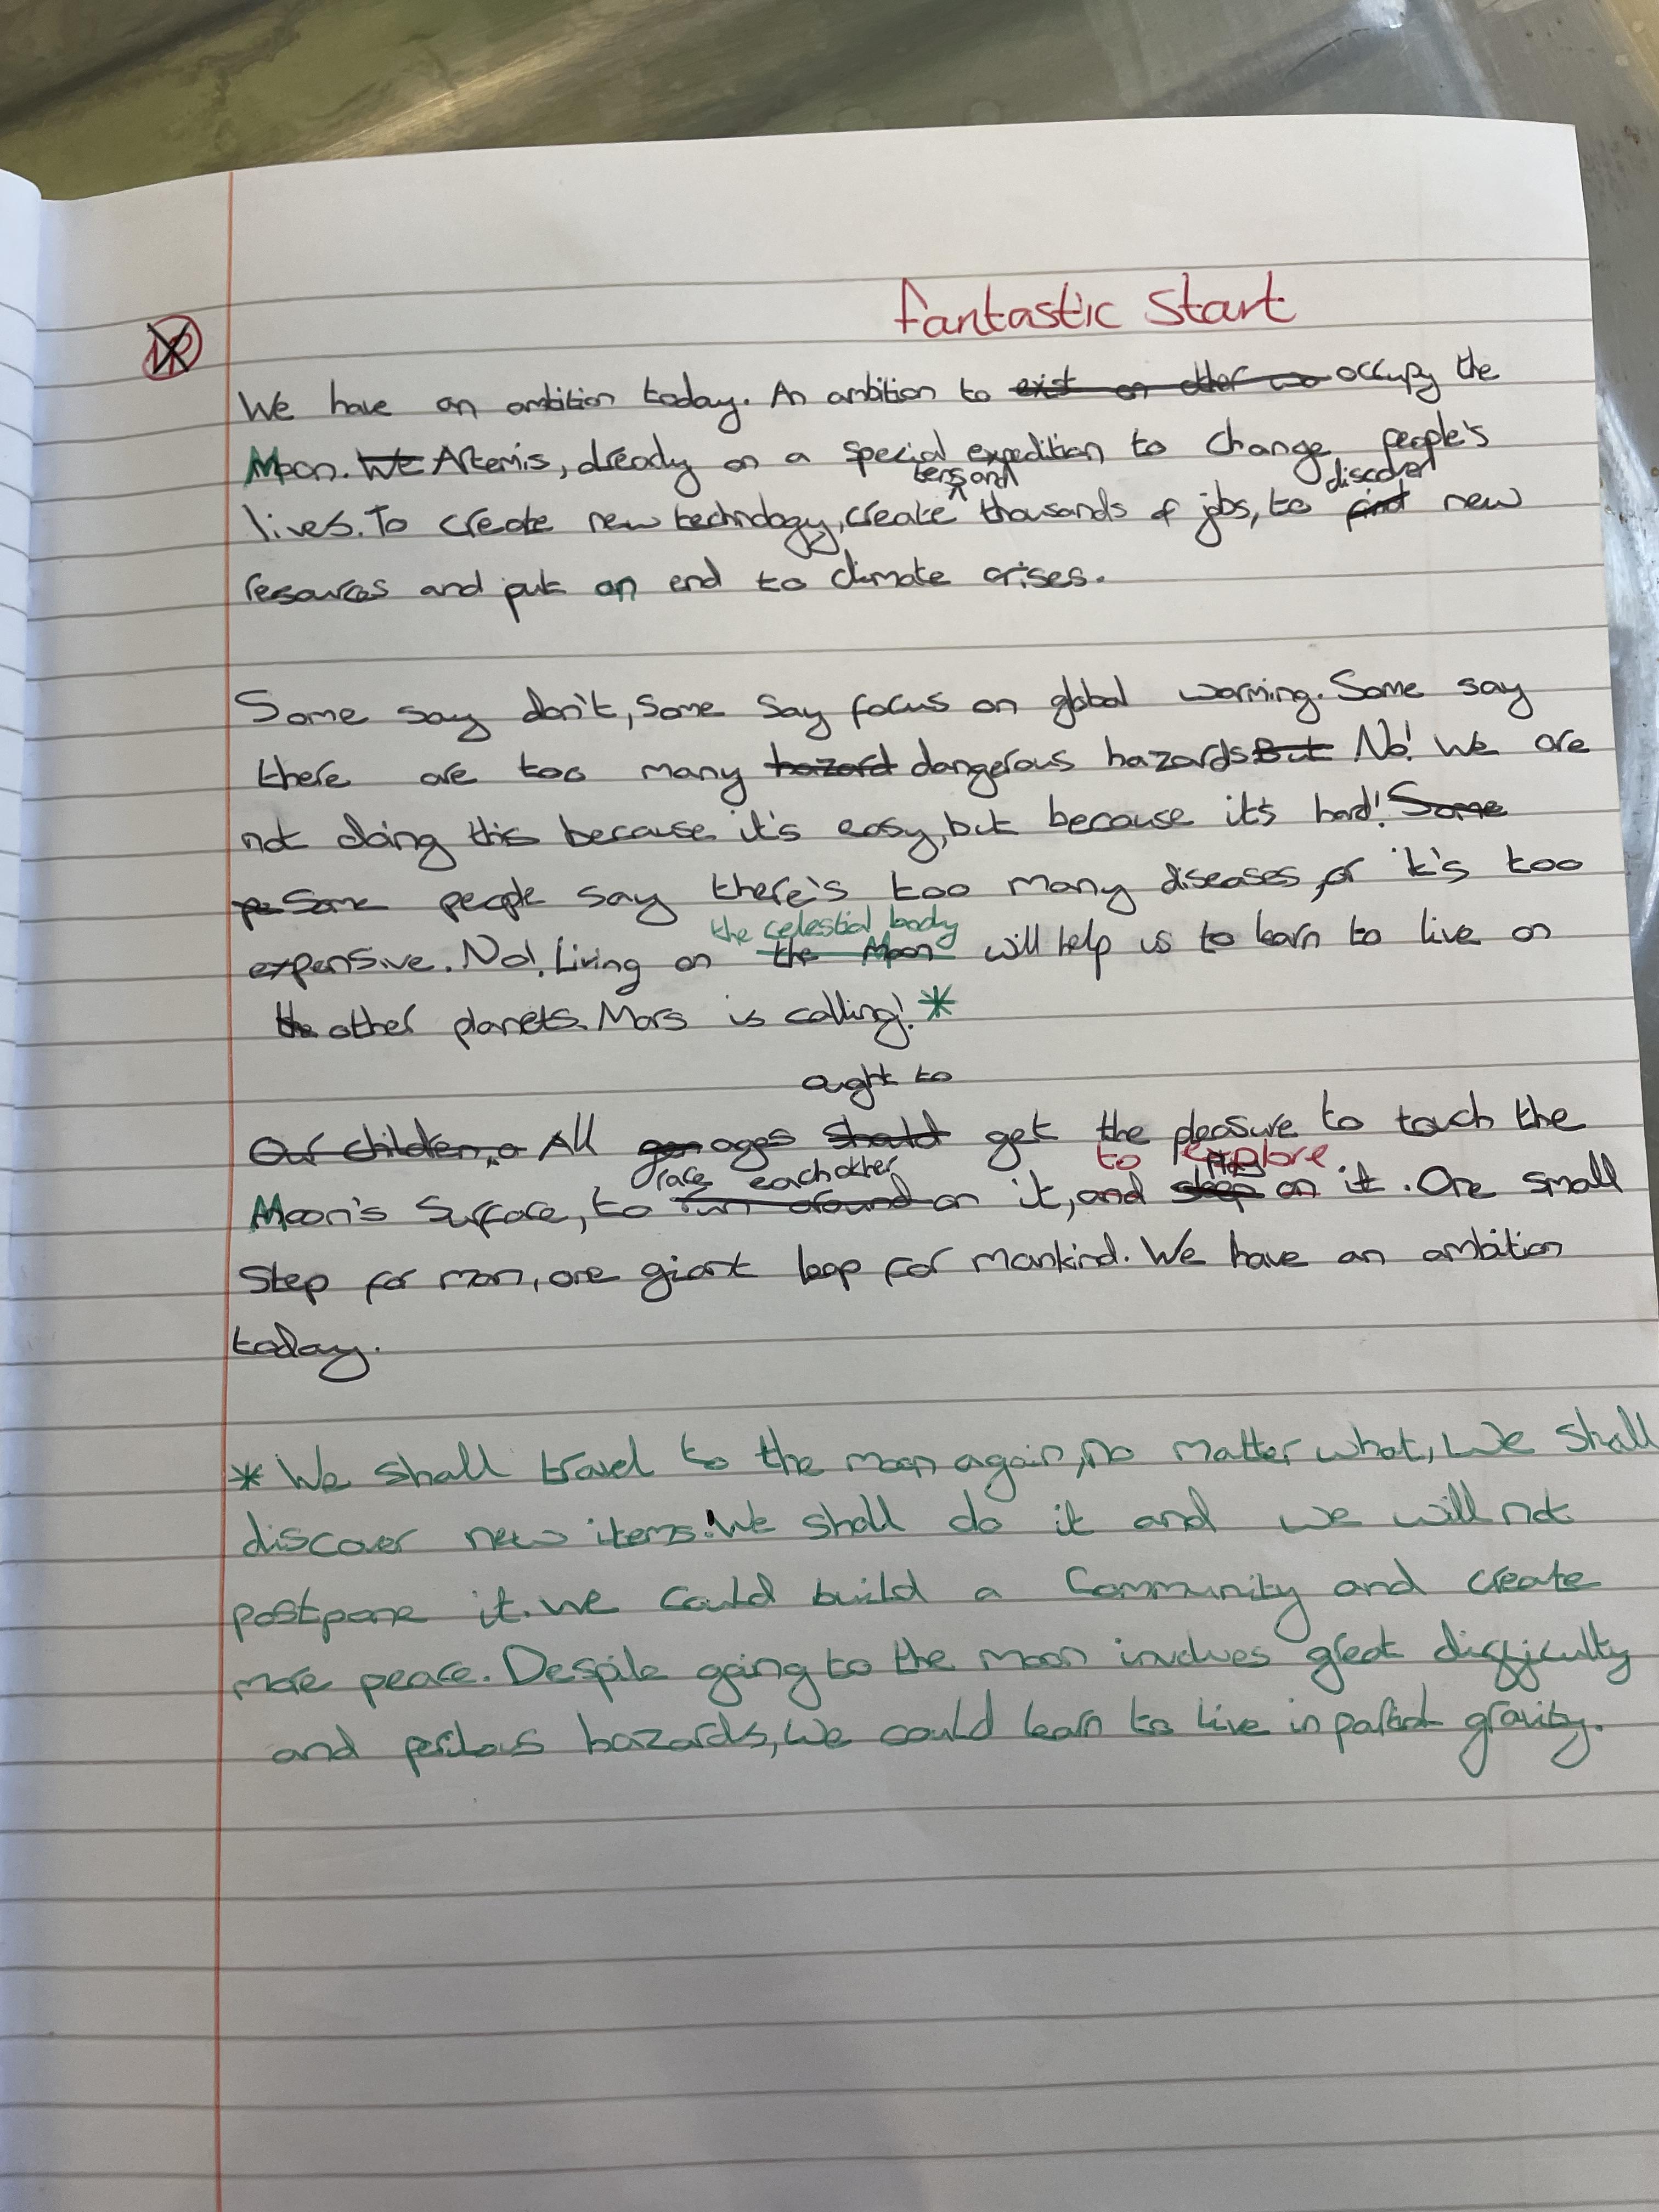 fantastic Start
NP
We have an ambition today. An ambition to exist on other wo occupy the
Moon. We Artemis, already on a special expedition to change people's
tens and discover
lives. To create new technology, create thousands of jobs, to find new
resources and put an end to climate crises.
Some say don't, some say focus on global warming. Some say
there are too many hazard dangerous hazards But No! We are
not doing this because it's easy, but because it's hard! Some
pe Some people say there's too many diseases, or it's too
the celestial body
expensive. No! Living on the Moon will help us to learn to live on
the other planets. Mars is calling! *
ought to
Our children, a All gen ages should get the pleasure to touch the
race each other to explore
Moon's surface, to run around on it, and step on it. One small
step for man, one giant leap for mankind. We have an ambition
today.
* We shall travel to the moon again, no matter what, we shall
discover new items. We shall do it and we will not
postpone it. we could build a community and create
more peace. Despite going to the moon involves great difficulty
and perilous hazards, we could learn to live in partial gravity.